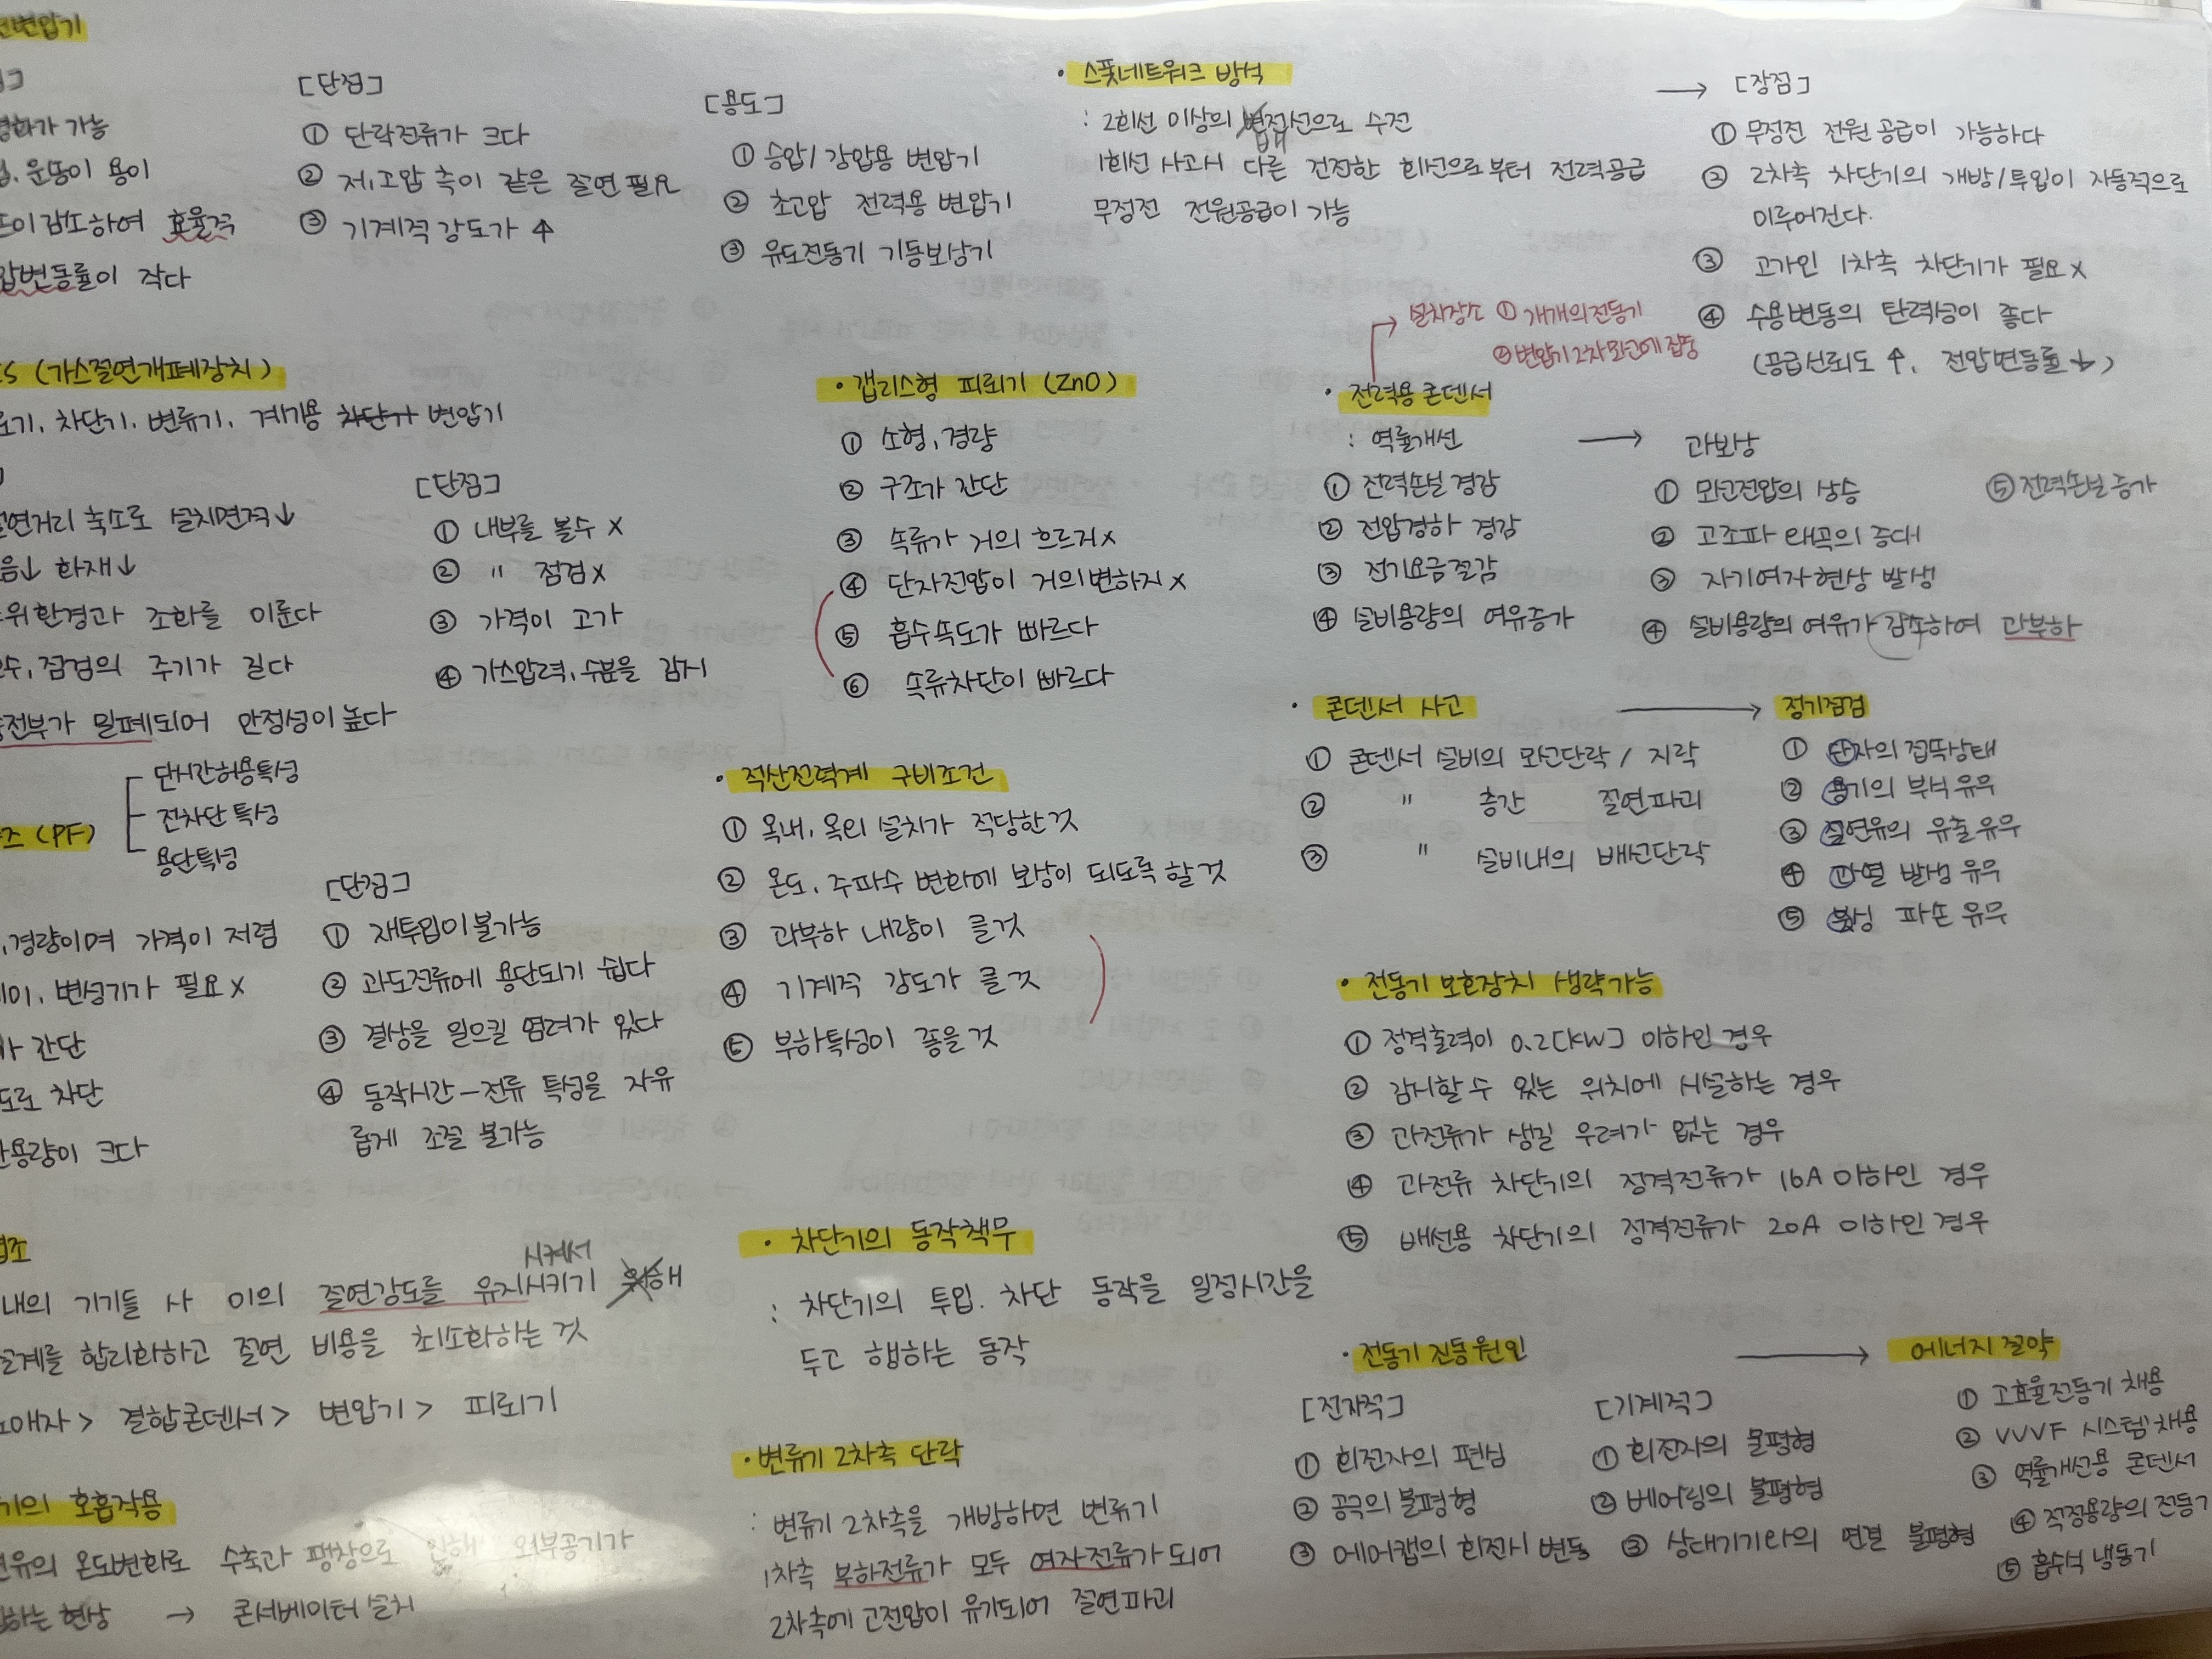 변압기
[단점]
가 가능
① 단락전류가 크다
운동이 용이
② 저, 고압 측이 같은 절연 필요
감소하여 효율적
③ 기계적 강도가 ↑
압변동률이 작다
[용도]
① 승압/강압용 변압기
② 초고압 전력용 변압기
③ 유도전동기 기동보상기
· 스폿네트워크 방식
: 2회선 이상의 배전선으로 수전
1회선 사고시 다른 건전한 회선으로부터 전력공급
무정전 전원공급이 가능
→ [장점]
① 무정전 전원공급이 가능하다
② 2차측 차단기의 개방/투입이 자동적으로
이루어진다.
③ 고가인 1차측 차단기가 필요 x
④ 수용변동의 탄력성이 좋다
(공급신뢰도 ↑, 전압변동률 ↓)
(가스절연개폐장치)
로기, 차단기, 변류기, 계기용 차단기 변압기
절연거리 축소로 설치면적↓
음↓ 화재↓
위환경과 조화를 이룬다
수, 점검의 주기가 길다
충전부가 밀폐되어 안정성이 높다
[단점]
① 내부를 볼수 x
② " 점검 x
③ 가격이 고가
④ 가스압력, 수분을 감시
· 갭리스형 피뢰기 (ZnO)
① 소형, 경량
② 구조가 간단
③ 속류가 거의 흐르지 x
④ 단자전압이 거의변하지 x
⑤ 흡수속도가 빠르다
⑥ 속류차단이 빠르다
설치장소 ① 개개의전동기
② 변압기2차모선에 집중
· 전력용 콘덴서
: 역률개선 → 과보상
① 전력손실 경감
② 전압강하 경감
③ 전기요금절감
④ 설비용량의 여유증가
① 모선전압의 상승
② 고조파 왜곡의 증대
③ 자기여자현상 발생
④ 설비용량의 여유가 감소하여 과부하
⑤ 전력손실 증가
· 콘덴서 사고 → 정기점검
① 콘덴서 설비의 모선단락 / 지락
② " 층간 절연파괴
③ " 설비내의 배선단락
① 단자의 접속상태
② 용기의 부식 유무
③ 절연유의 유출유무
④ 과열 발생 유무
⑤ 붓싱 파손 유무
즈 (PF)
단시간허용특성
전차단 특성
용단특성
, 경량이며 가격이 저렴
이, 변성기가 필요 x
가 간단
도로 차단
용량이 크다
[단점]
① 재투입이불가능
② 과도전류에 용단되기 쉽다
③ 결상을 일으킬 염려가 있다
④ 동작시간-전류 특성을 자유
롭게 조절 불가능
· 적산전력계 구비조건
① 옥내, 옥외 설치가 적당한것
② 온도, 주파수 변화에 보상이 되도록 할것
③ 과부하 내량이 클것
④ 기계적 강도가 클것
⑤ 부하특성이 좋을것
· 전동기 보호장치 생략가능
① 정격출력이 0.2[kW] 이하인 경우
② 감시할 수 있는 위치에 시설하는 경우
③ 과전류가 생길 우려가 없는 경우
④ 과전류 차단기의 정격전류가 16A 이하인 경우
⑤ 배선용 차단기의 정격전류가 20A 이하인 경우
협조
내의 기기들 사 이의 절연강도를 유지시키기 위해
시켜서
설계를 합리화하고 절연 비용을 최소화하는 것
애자 > 결합콘덴서 > 변압기 > 피뢰기
· 차단기의 동작책무
: 차단기의 투입. 차단 동작을 일정시간을
두고 행하는 동작
기의 호흡작용
연유의 온도변화로 수축과 팽창으로 인해 외부공기가
하는 현상 → 콘서베이터 설치
· 변류기 2차측 단락
: 변류기 2차측을 개방하면 변류기
1차측 부하전류가 모두 여자전류가 되어
2차측에 고전압이 유기되어 절연파괴
· 전동기 진동원인 → 에너지 절약
[전자적]
① 회전자의 편심
② 공극의 불평형
③ 에어갭의 회전시 변동
[기계적]
① 회전자의 불평형
② 베어링의 불평형
③ 상대기기와의 연결 불평형
① 고효율전동기 채용
② VVVF 시스템 채용
③ 역률개선용 콘덴서
④ 적정용량의 전동기
⑤ 흡수식 냉동기